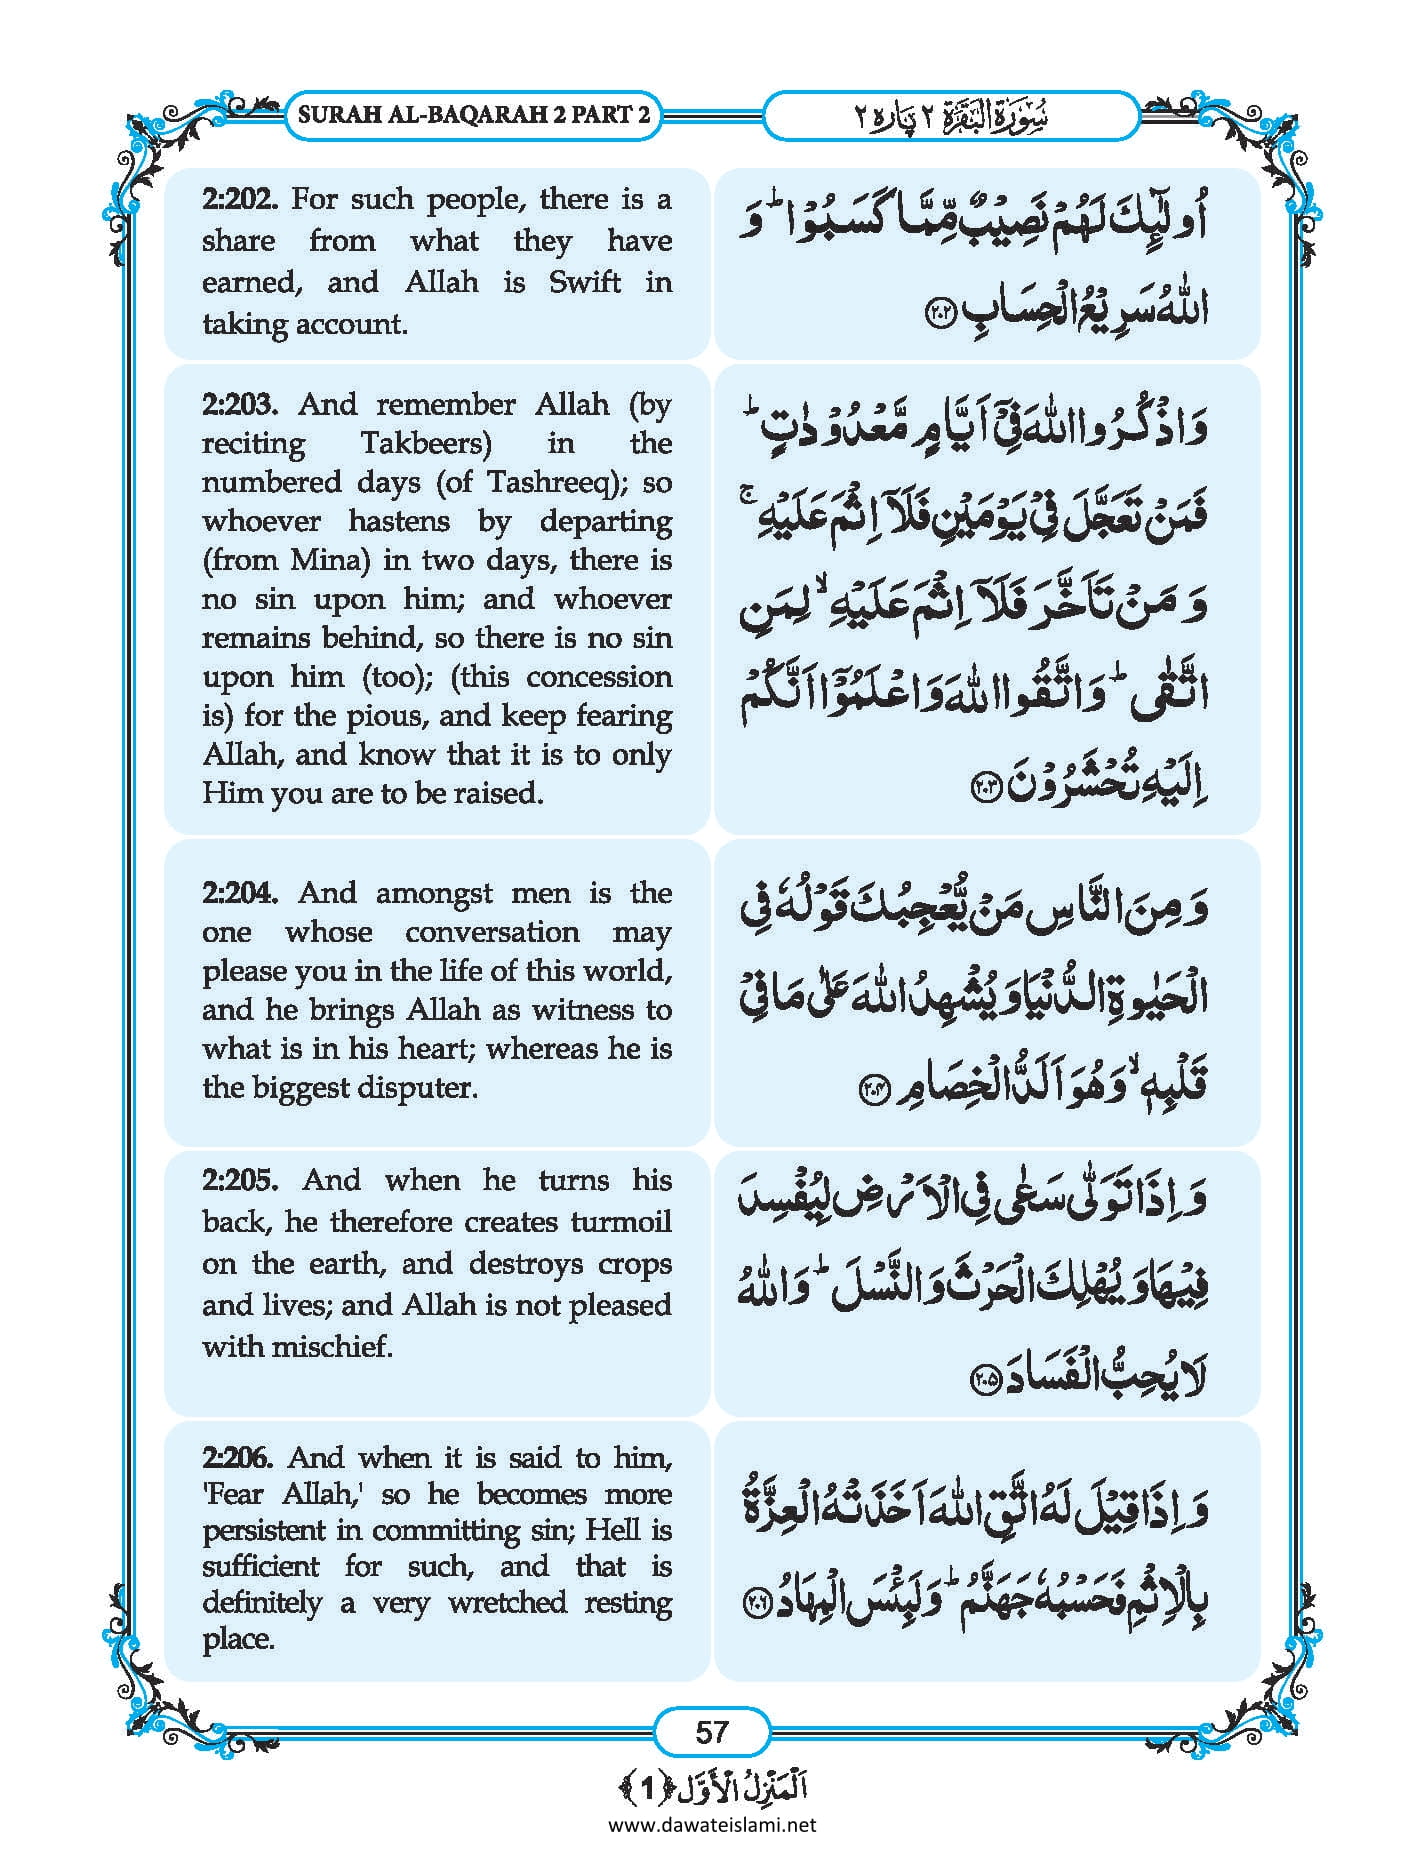 SURAH AL-BAQARAH 2 PART 2
سُوْرَۃُ الْبَقَرَۃ ٢ پارہ ٢
2:202. For such people, there is a
share from what they have
earned, and Allah is Swift in
taking account.
اُولٰٓئِكَ لَهُمْ نَصِیْبٌ مِّمَّا كَسَبُوْا ؕ وَ
اللّٰهُ سَرِیْعُ الْحِسَابِ ﴿۲۰۲﴾
2:203. And remember Allah (by
reciting Takbeers) in the
numbered days (of Tashreeq); so
whoever hastens by departing
(from Mina) in two days, there is
no sin upon him; and whoever
remains behind, so there is no sin
upon him (too); (this concession
is) for the pious, and keep fearing
Allah, and know that it is to only
Him you are to be raised.
وَ اذْكُرُوا اللّٰهَ فِیْۤ اَیَّامٍ مَّعْدُوْدٰتٍ ؕ
فَمَنْ تَعَجَّلَ فِیْ یَوْمَیْنِ فَلَاۤ اِثْمَ عَلَیْهِ ۚ
وَ مَنْ تَاَخَّرَ فَلَاۤ اِثْمَ عَلَیْهِ ۙ لِمَنِ
اتَّقٰی ؕ وَ اتَّقُوا اللّٰهَ وَ اعْلَمُوْۤا اَنَّكُمْ
اِلَیْهِ تُحْشَرُوْنَ ﴿۲۰۳﴾
2:204. And amongst men is the
one whose conversation may
please you in the life of this world,
and he brings Allah as witness to
what is in his heart; whereas he is
the biggest disputer.
وَ مِنَ النَّاسِ مَنْ یُّعْجِبُكَ قَوْلُهٗ فِی
الْحَیٰوةِ الدُّنْیَا وَ یُشْهِدُ اللّٰهَ عَلٰی مَا فِیْ
قَلْبِهٖ ۙ وَ هُوَ اَلَدُّ الْخِصَامِ ﴿۲۰۴﴾
2:205. And when he turns his
back, he therefore creates turmoil
on the earth, and destroys crops
and lives; and Allah is not pleased
with mischief.
وَ اِذَا تَوَلّٰی سَعٰی فِی الْاَرْضِ لِیُفْسِدَ
فِیْهَا وَ یُهْلِكَ الْحَرْثَ وَ النَّسْلَ ؕ وَ اللّٰهُ
لَا یُحِبُّ الْفَسَادَ ﴿۲۰۵﴾
2:206. And when it is said to him,
'Fear Allah,' so he becomes more
persistent in committing sin; Hell is
sufficient for such, and that is
definitely a very wretched resting
place.
وَ اِذَا قِیْلَ لَهُ اتَّقِ اللّٰهَ اَخَذَتْهُ الْعِزَّةُ
بِالْاِثْمِ فَحَسْبُهٗ جَهَنَّمُ ؕ وَ لَبِئْسَ الْمِهَادُ ﴿۲۰۶﴾
57
اَلْمَنْزِلُ الْاَوَّل ﴿1﴾
www.dawateislami.net